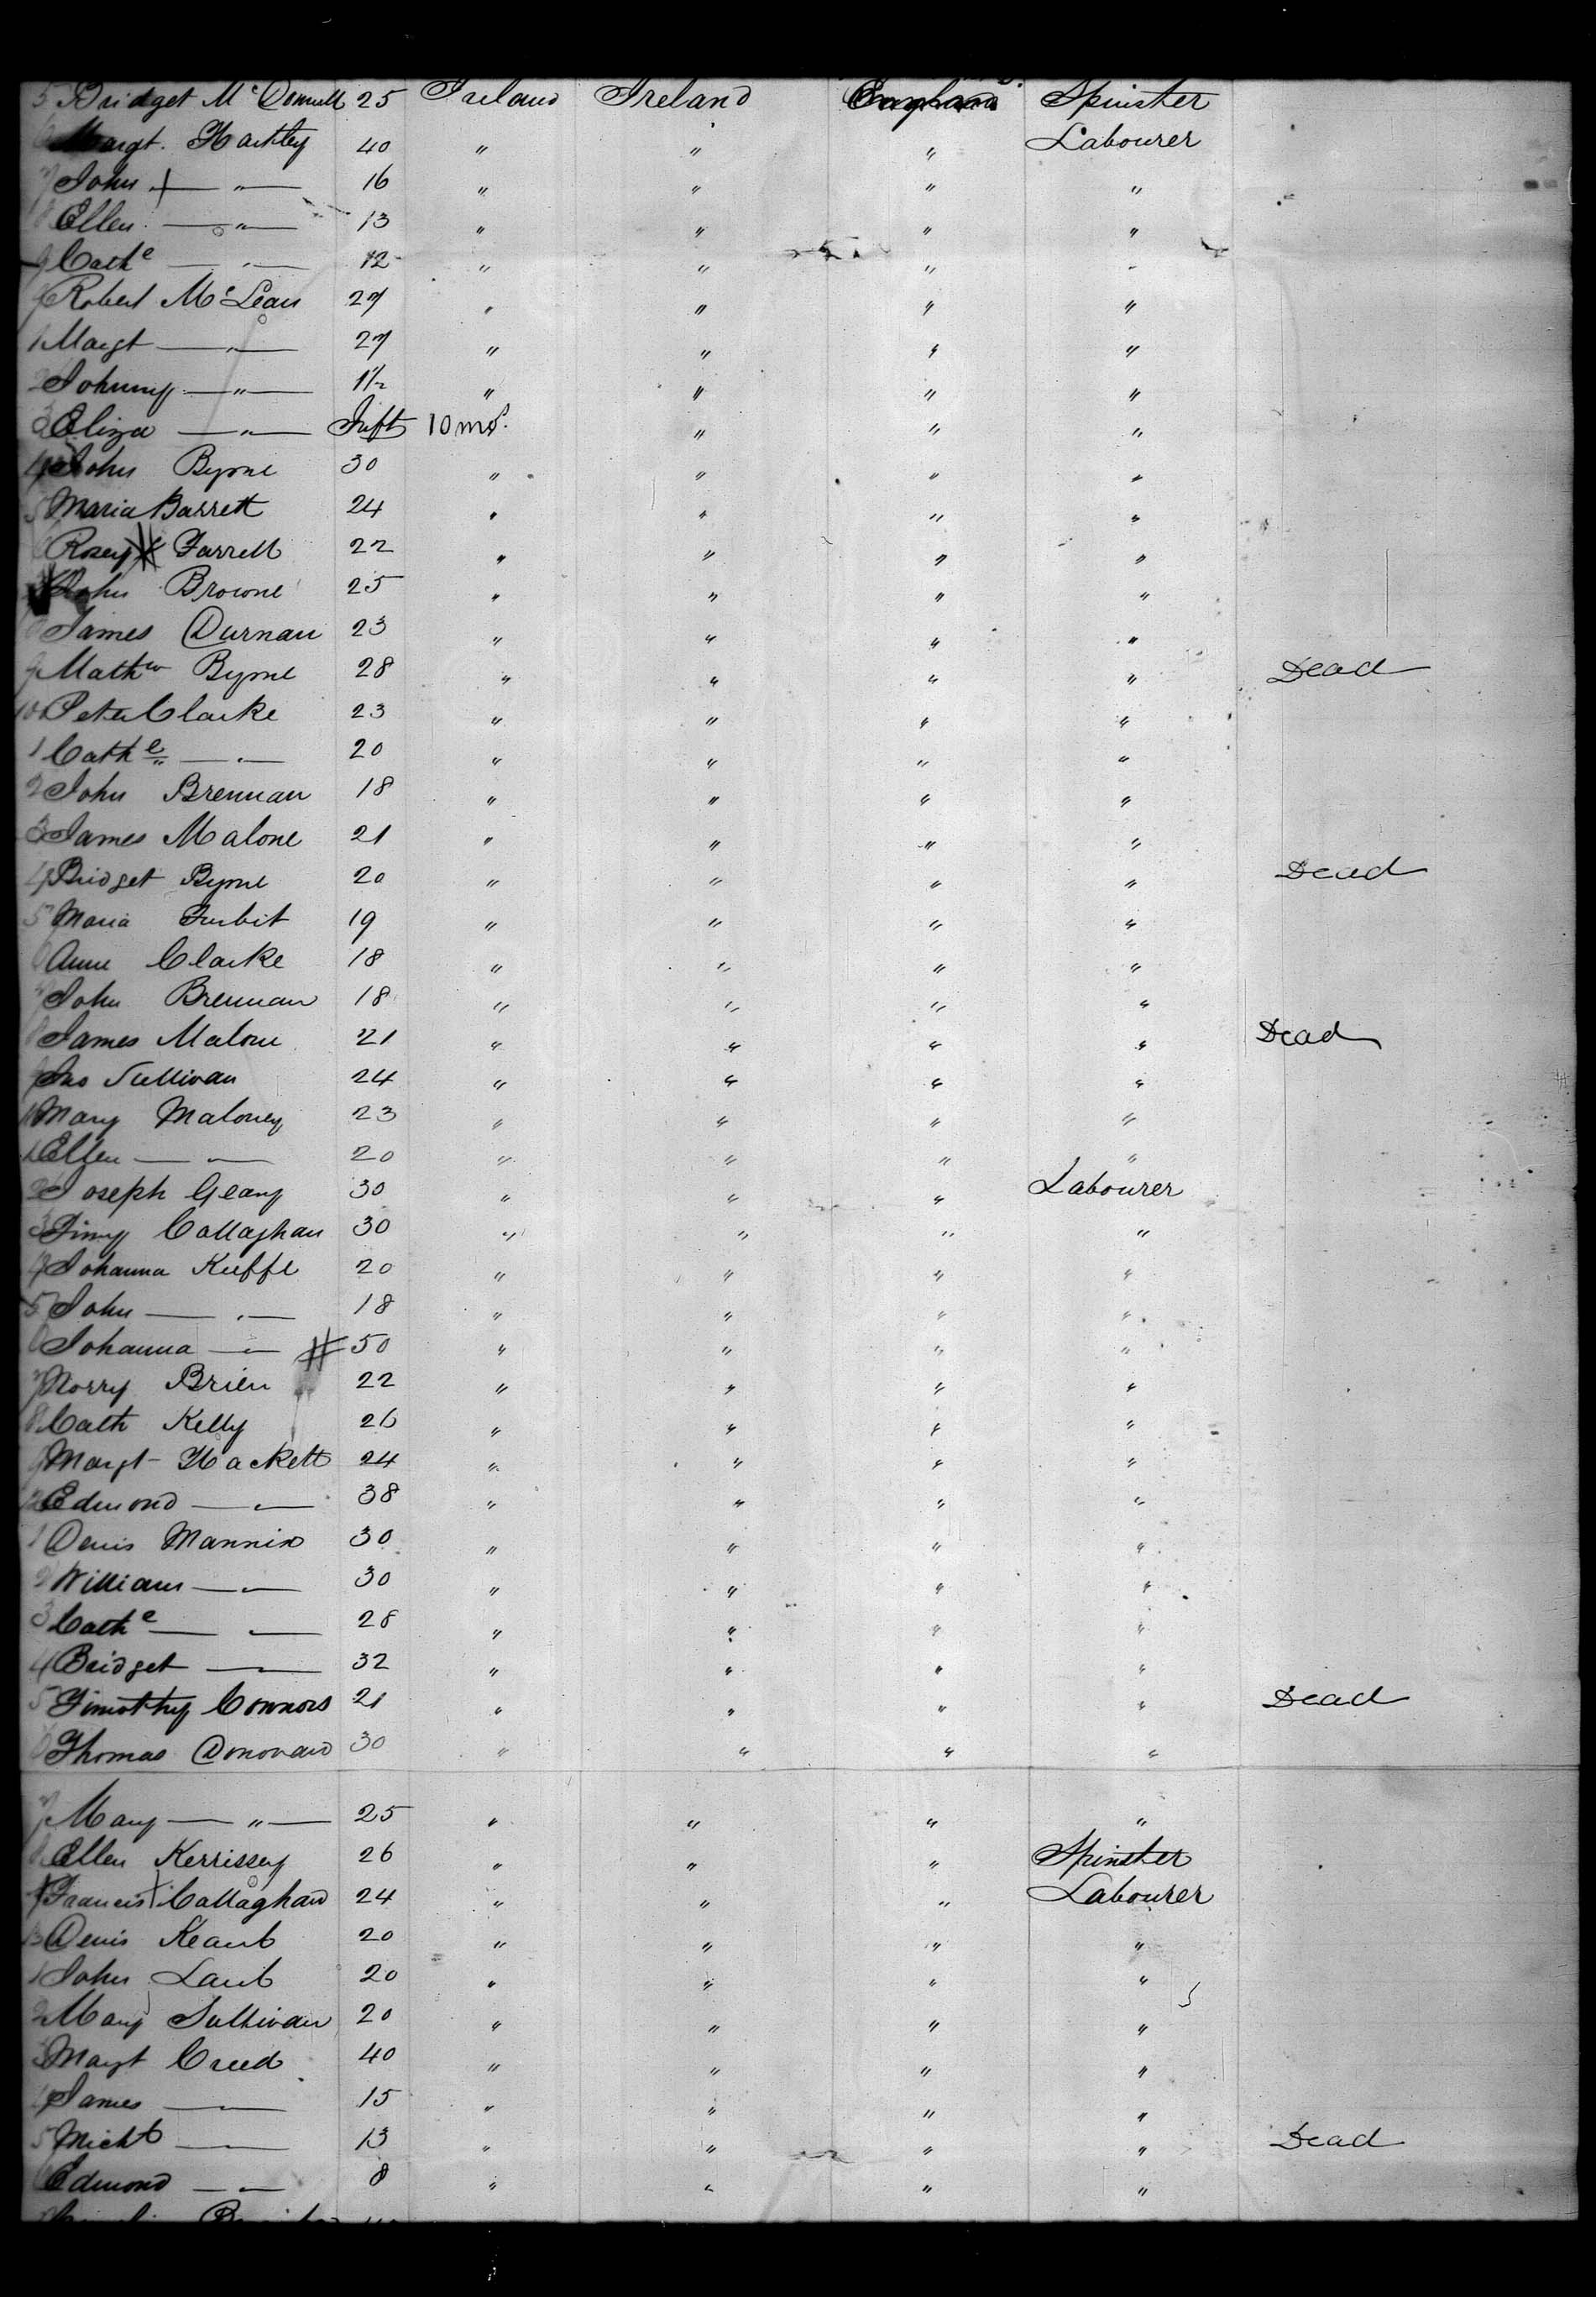 5 Bridget McDonnell 25 Ireland Ireland Spinster
Margt. Hartley 40 " " " Labourer
John — " — 16 " " " "
Ellen — " — 13 " " " "
9 Cathe — " — 12 " " " "
Robert McLean 27 " " " "
1 Margt — " — 27 " " " "
2 Johnny — " — 1½ " " " "
3 Eliza — " — Inft 10 mos. " " "
4 John Byrne 30 " " " "
5 Maria Barrett 24 " " " "
Rosey Farrell 22 " " " "
John Browne 25 " " " "
James Durnan 23 " " " "
9 Mathw Byrne 28 " " " " Dead
10 Peter Clarke 23 " " " "
1 Cathe — " — 20 " " " "
2 John Brennan 18 " " " "
3 James Malone 21 " " " "
4 Bridget Byrne 20 " " " " Dead
5 Maria Turbit 19 " " " "
6 Anne Clarke 18 " " " "
7 John Brennan 18 " " " "
8 James Malone 21 " " " " Dead
Jas Sullivan 24 " " " "
Mary Maloney 23 " " " "
1 Ellen — " — 20 " " " "
2 Joseph Geany 30 " " " Labourer
3 Timy Callaghan 30 " " " "
4 Johanna Kieffe 20 " " " "
5 John — " — 18 " " " "
6 Johanna — " — 50 " " " "
7 Norry Brien 22 " " " "
8 Cath Kelly 26 " " " "
9 Margt Hackett 24 " " " "
Edmond — " — 38 " " " "
1 Denis Mannix 30 " " " "
2 William — " — 30 " " " "
3 Cathe — " — 28 " " " "
4 Bridget — " — 32 " " " "
5 Timothy Connors 21 " " " " Dead
6 Thomas Donovan 30 " " " "
7 Mary — " — 25 " " " "
8 Ellen Kerrissey 26 " " " Spinster
Francis Callaghan 24 " " " Labourer
Denis Keane 20 " " " "
1 John Lane 20 " " " "
2 Mary Sullivan 20 " " " "
3 Margt Creed 40 " " " "
4 James — " — 15 " " " "
5 Michl — " — 13 " " " " Dead
Edmond — " — 8 " " " "